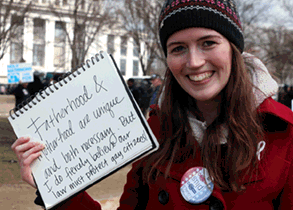 Fatherhood &
Motherhood are unique
and both necessary. But
I do fiercely believe our
law must protect gay citizens